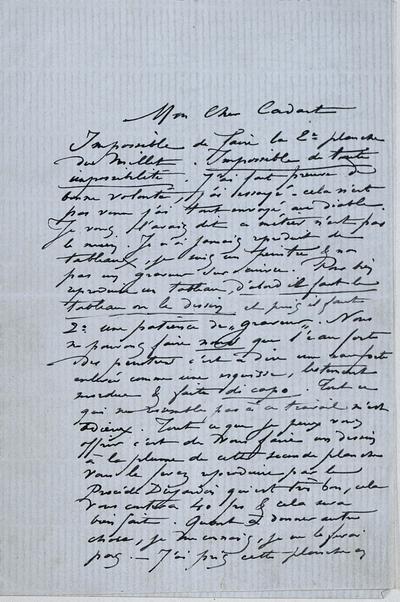 Mon Cher Cadart
Impossible de faire la 2e planche
du Millet. Impossible de toute
impossibilité. J'ai fait preuve de
bonne volonté, j'ai essayé - cela n'est
pas venu j'ai tout envoyé au diable.
Je vous l'avais dit ce métier n'est pas
le mien. Je n'ai jamais reproduit de
tableaux, je suis un peintre & non
pas un graveur sur Pour bien
reproduire un tableau, d'abord il faut le
tableau ou le dessin et puis il faut
2e une patience de "graveur". Nous
ne pouvons faire nous que l'eau forte
des peintres c'est à dire une eau forte
enlevée comme une esquisse, lestement
mordue & faite di capo. Tout ce
qui ne ressemble pas à ce travail n'est
odieux. Tout ce que je peux vous
offrir c'est de vous faire un dessin
à la plume de cette seconde planche
vous le ferez reproduire par le
Procédé Dujardin qui est très bon, cela
vous coûtera 40 frs & cela sera
bien fait. Quant à donner autre
chose, je me connais, je ne le ferai
pas. — J'ai pris cette planche